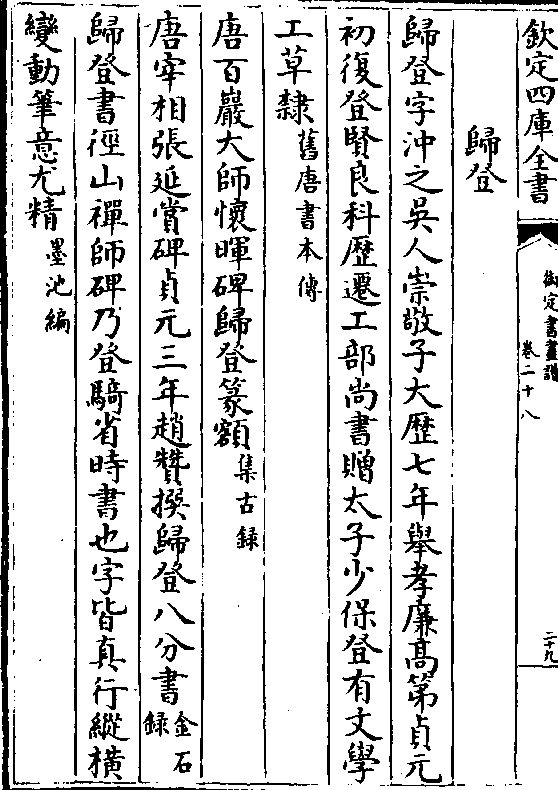 欽定四庫全書
御定書畫譜
卷二十八
二十九
歸登
歸登字沖之吳人崇敬子大歷七年舉孝廉高第貞元
初復登賢良科歷遷工部尚書贈太子少保登有文學
工草隸舊唐書本傳
唐百巖大師懷暉碑歸登篆額集古錄
唐宰相張延賞碑貞元三年趙贊撰歸登八分書金石錄
歸登書徑山禪師碑乃登騎省時書也字皆真行縱橫
變動筆意尤精墨池編